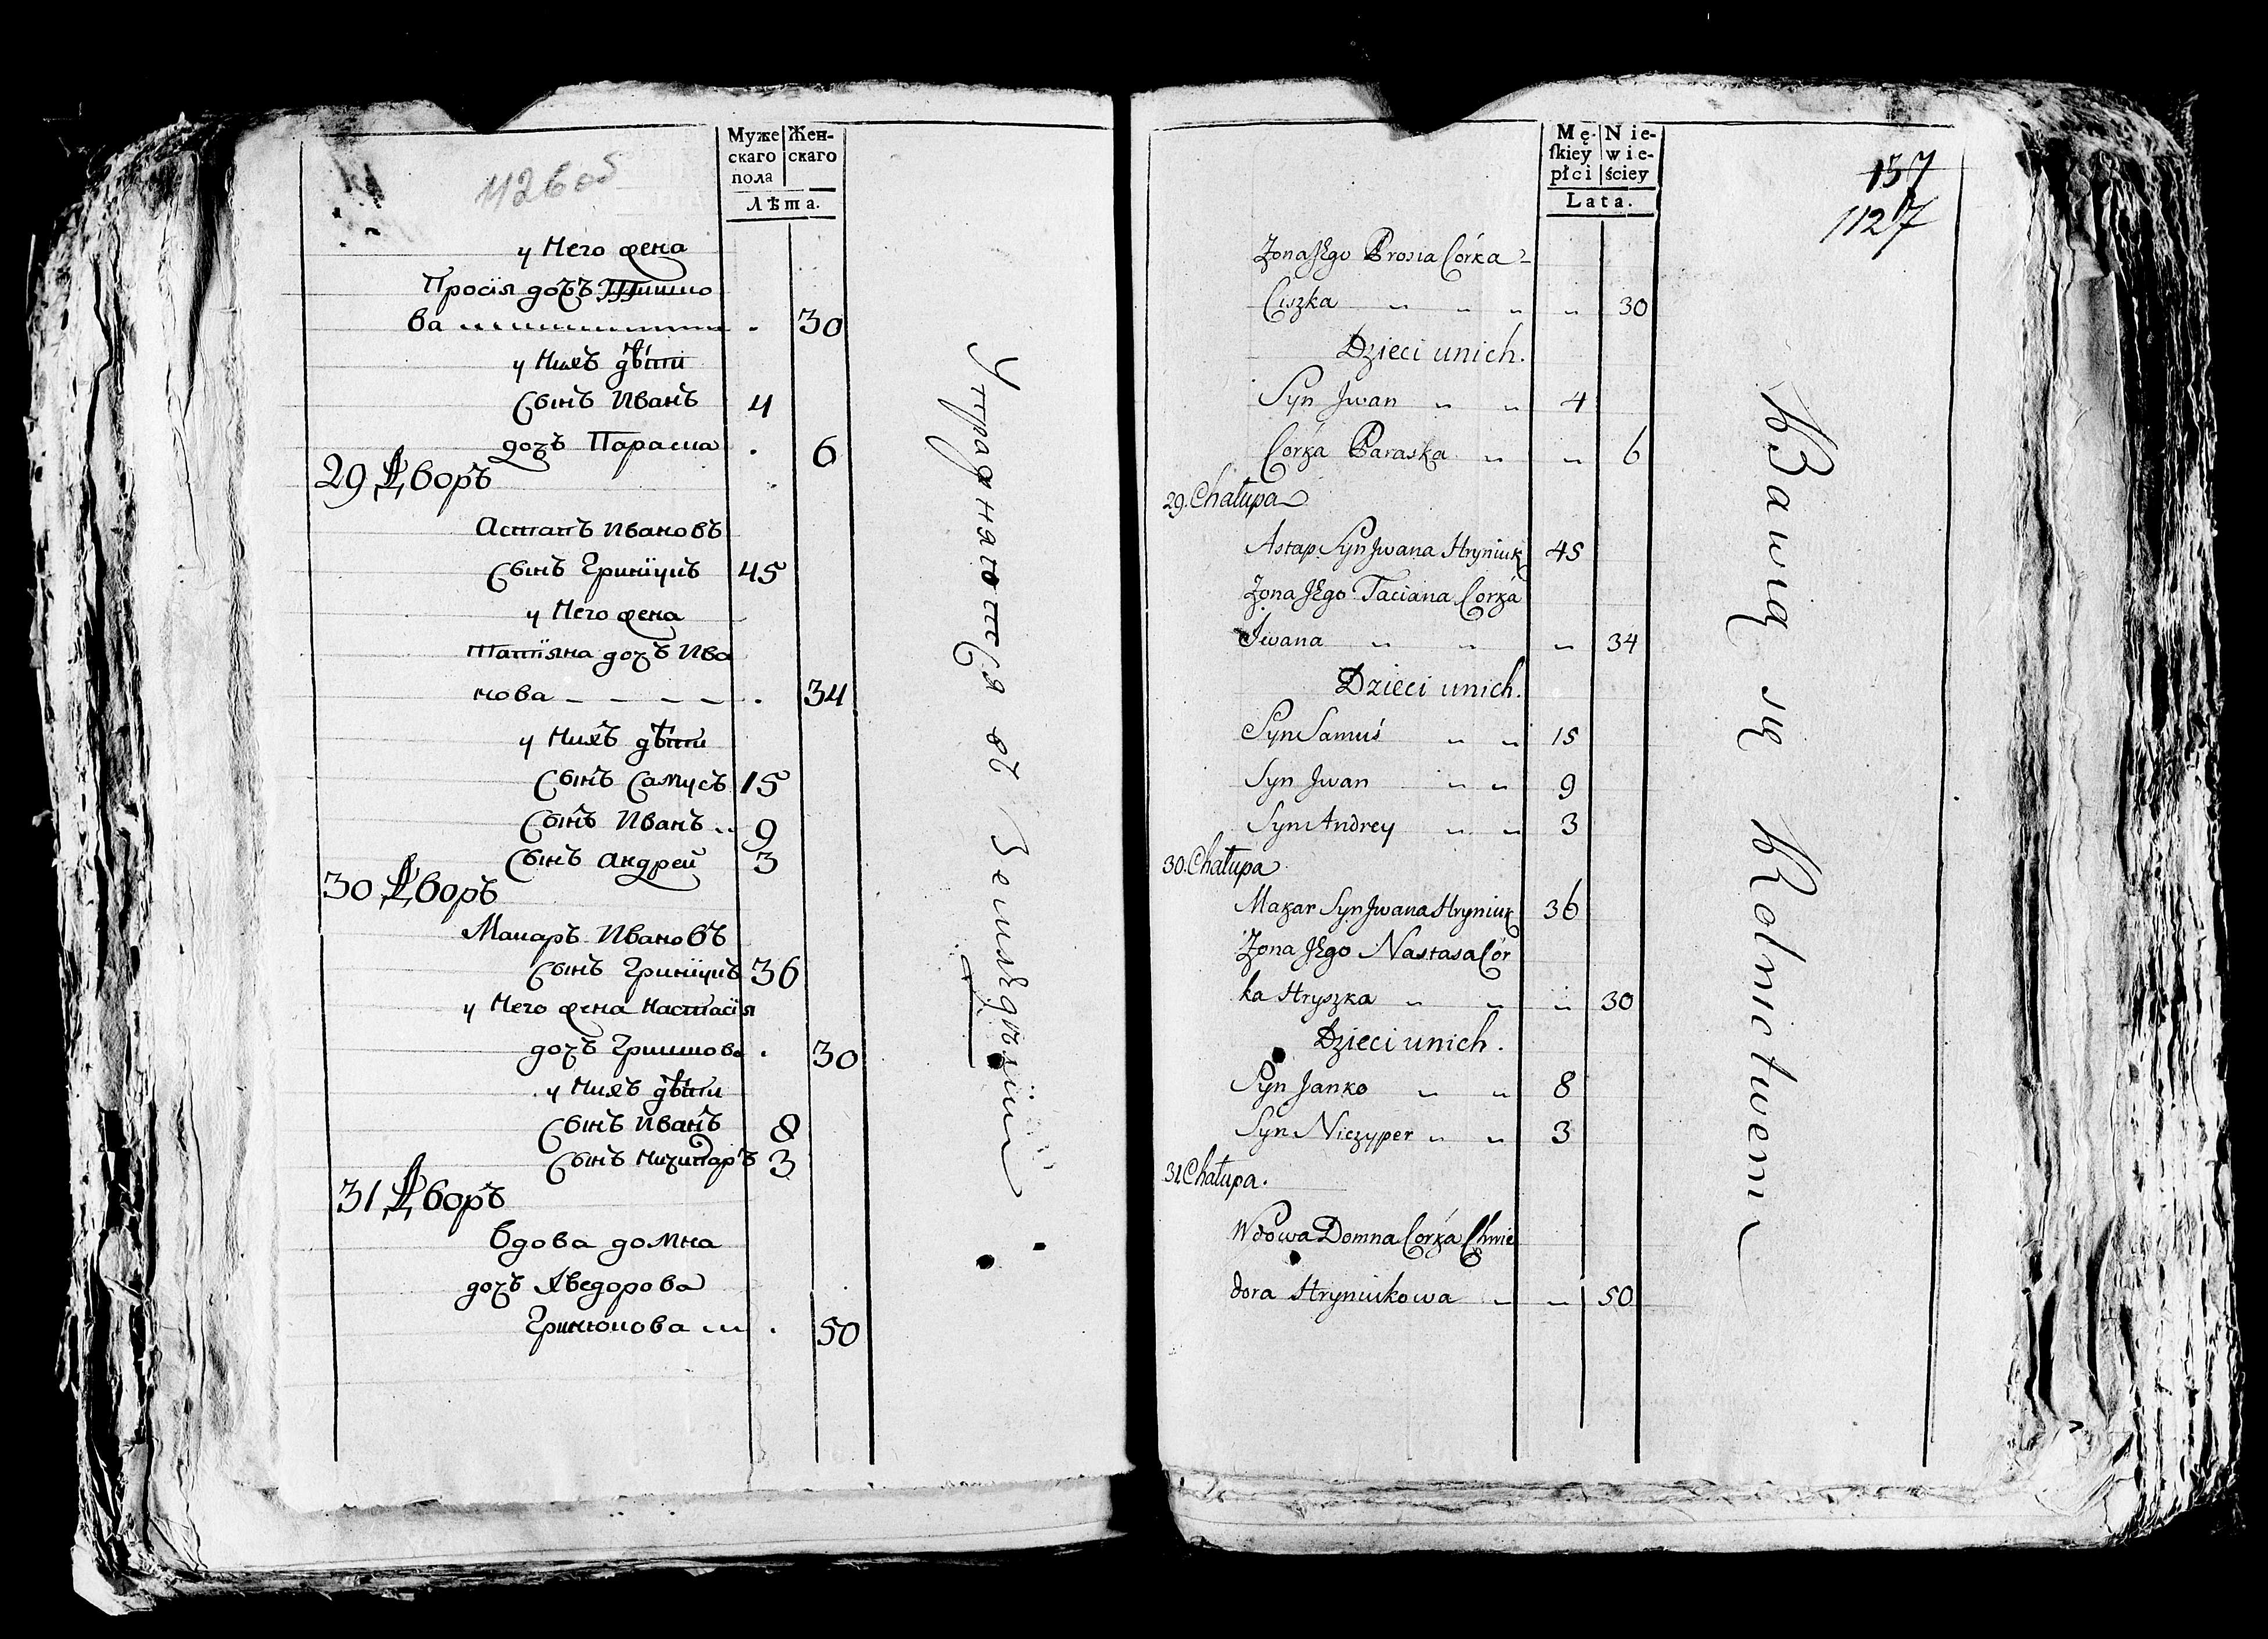 1126 об
Муже Жен-
скаго скаго
пола
Лѣта.
у Него жена
Просія дочъ Тишко
ва . 30
у Нихъ дѣти
Сынъ Иванъ 4
дочъ Параска . 6
29 Дворъ
Астапъ Ивановъ
Сынъ Гринiукъ 45
у Него жена
Татіяна дочъ Ива
нова . 34
у Нихъ дѣти
Сынъ Самусъ 15
Сынъ Иванъ 9
Сынъ Андрей 3
30 Дворъ
Макаръ Ивановъ
Сынъ Гринiукъ 36
у Него жена Настасія
дочъ Гришкова . 30
у Нихъ дѣти
Сынъ Иванъ 8
Сынъ Ничипаръ 3
31 Дворъ
Вдова домна
дочъ Хведорова
Гринюкова . 50
Упражняются въ Земледѣліи
Mę- Nie-
ſkiey wie-
płci ściey
Lata.
157
1127
Żona Jego Prosia Córka
Ciszka " " " " 30
Dzieci unich.
Syn Jwan " " 4
Córka Paraska " " 6
29. Chałupa
Astap Syn Jwana Hryniuk 45
Żona Jego Taciana Córka
Jwana " " " 34
Dzieci unich.
Syn Samuś " " 15
Syn Jwan " " 9
Syn Andrey " " 3
30. Chałupa
Makar Syn Jwana Hryniuk 36
Żona Jego Nastasa Cór
ka Hryszka " " " 30
Dzieci unich.
Syn Janko " " 8
Syn Niczyper " " 3
31. Chałupa.
Wdowa Domna Córka Chwie
dora Hryniukowa " " 50
Bawią się Rolnictwem